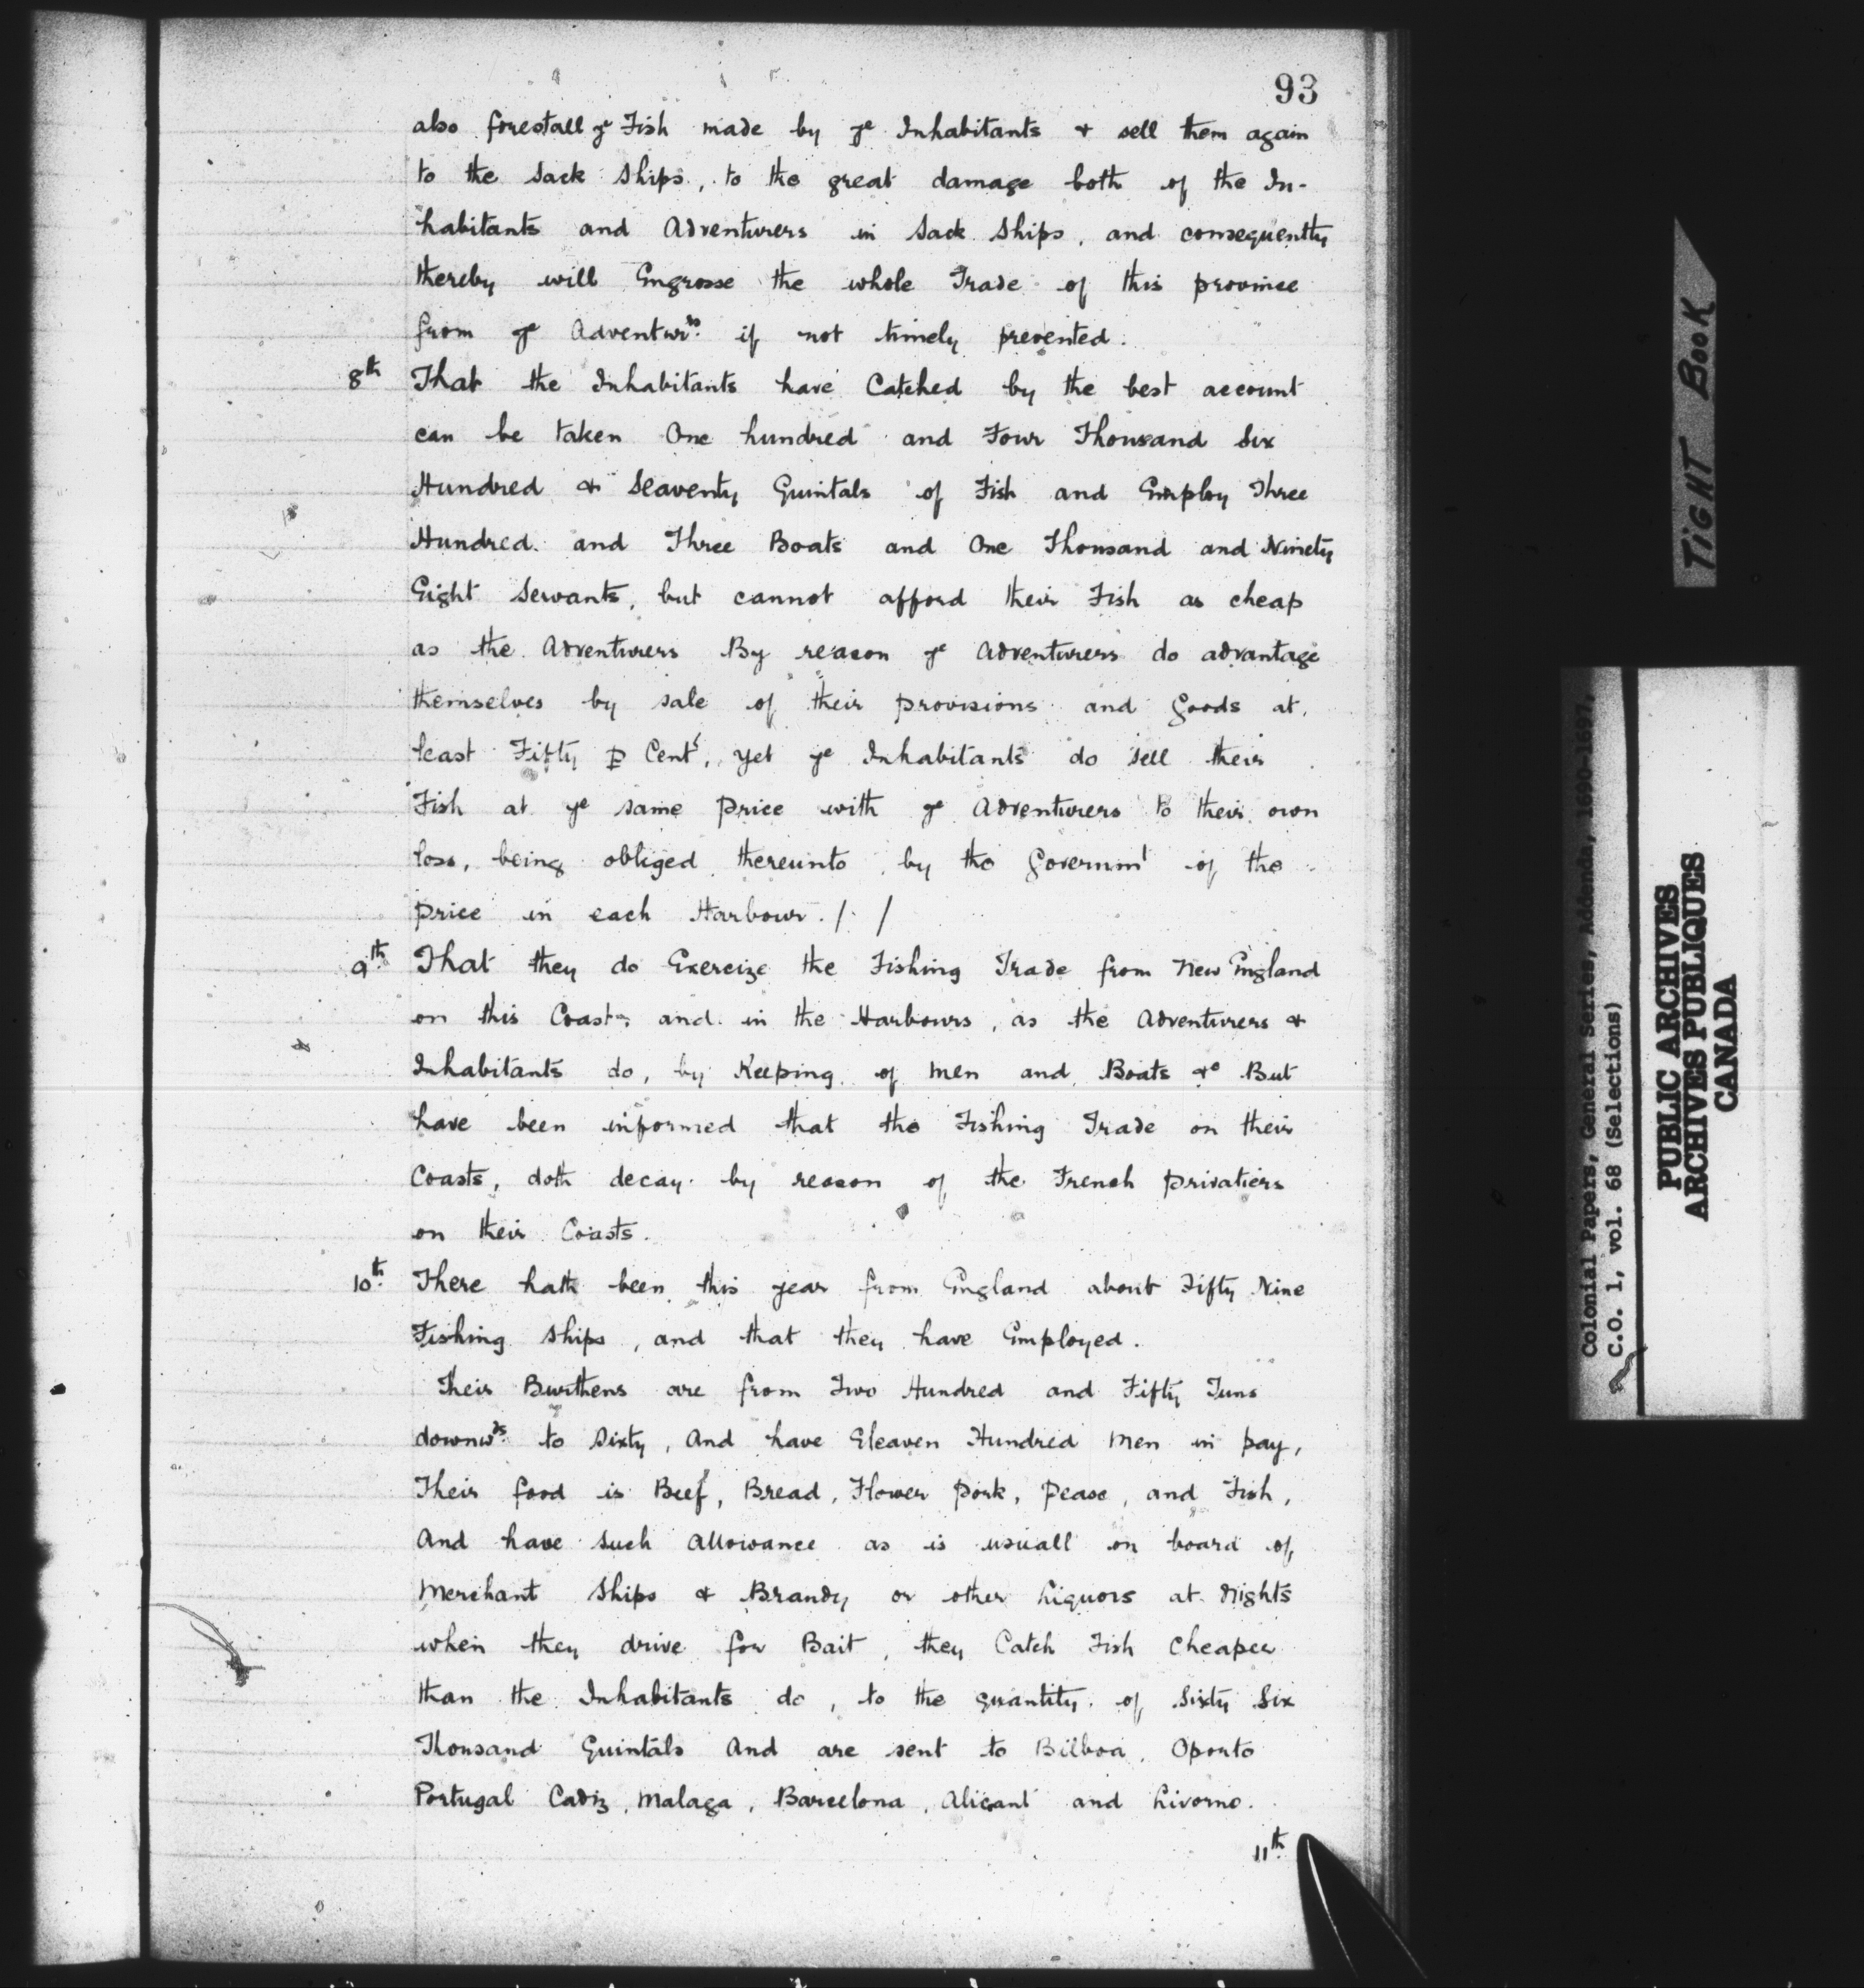 93
also forestall ye Fish made by ye Inhabitants & sell them again
to the Sack Ships, to the great damage both of the In-
habitants and Adventurers in Sack Ships, and consequently
thereby will Engrosse the whole Trade of this province
from ye Adventurrs if not timely prevented.
8th That the Inhabitants have Catched by the best account
can be taken One hundred and Four Thousand Six
Hundred & Seaventy Quintals of Fish and Employ Three
Hundred and Three Boats and One Thousand and Ninety
Eight Servants, but cannot afford their Fish as cheap
as the Adventurers By reason ye Adventurers do advantage
themselves by sale of their provisions and Goods at
least Fifty P Cent, yet ye Inhabitants do sell their
Fish at ye same Price with ye Adventurers to their own
loss, being obliged thereunto by the Governmt of the
price in each Harbour. /. /
9th That they do Exercize the Fishing Trade from New England
on this Coast, and in the Harbours, as the Adventurers &
Inhabitants do, by Keeping of Men and Boats &c But
have been informed that the Fishing Trade on their
Coasts, doth decay by reason of the French privatiers
on their Coasts.
10th There hath been this year from England about Fifty Nine
Fishing Ships, and that they have Employed.
Their Burthens are from Two Hundred and Fifty Tuns
downwds to Sixty, And have Eleaven Hundred Men in pay,
Their food is Beef, Bread, Flower Pork, Pease, and Fish,
And have such Allowance as is usuall on board of
Merchant Ships & Brandy or other Liquors at Nights
when they drive for Bait, they Catch Fish Cheaper
than the Inhabitants do, to the quantity of Sixty Six
Thousand Quintals And are sent to Bilboa, Oporto
Portugal Cadiz, Malaga, Barcelona, Alicant and Livorno.
11th
TIGHT BOOK
Colonial Papers, General Series, Addenda, 1690-1697,
C.O. 1, vol. 68 (Selections)
PUBLIC ARCHIVES
ARCHIVES PUBLIQUES
CANADA